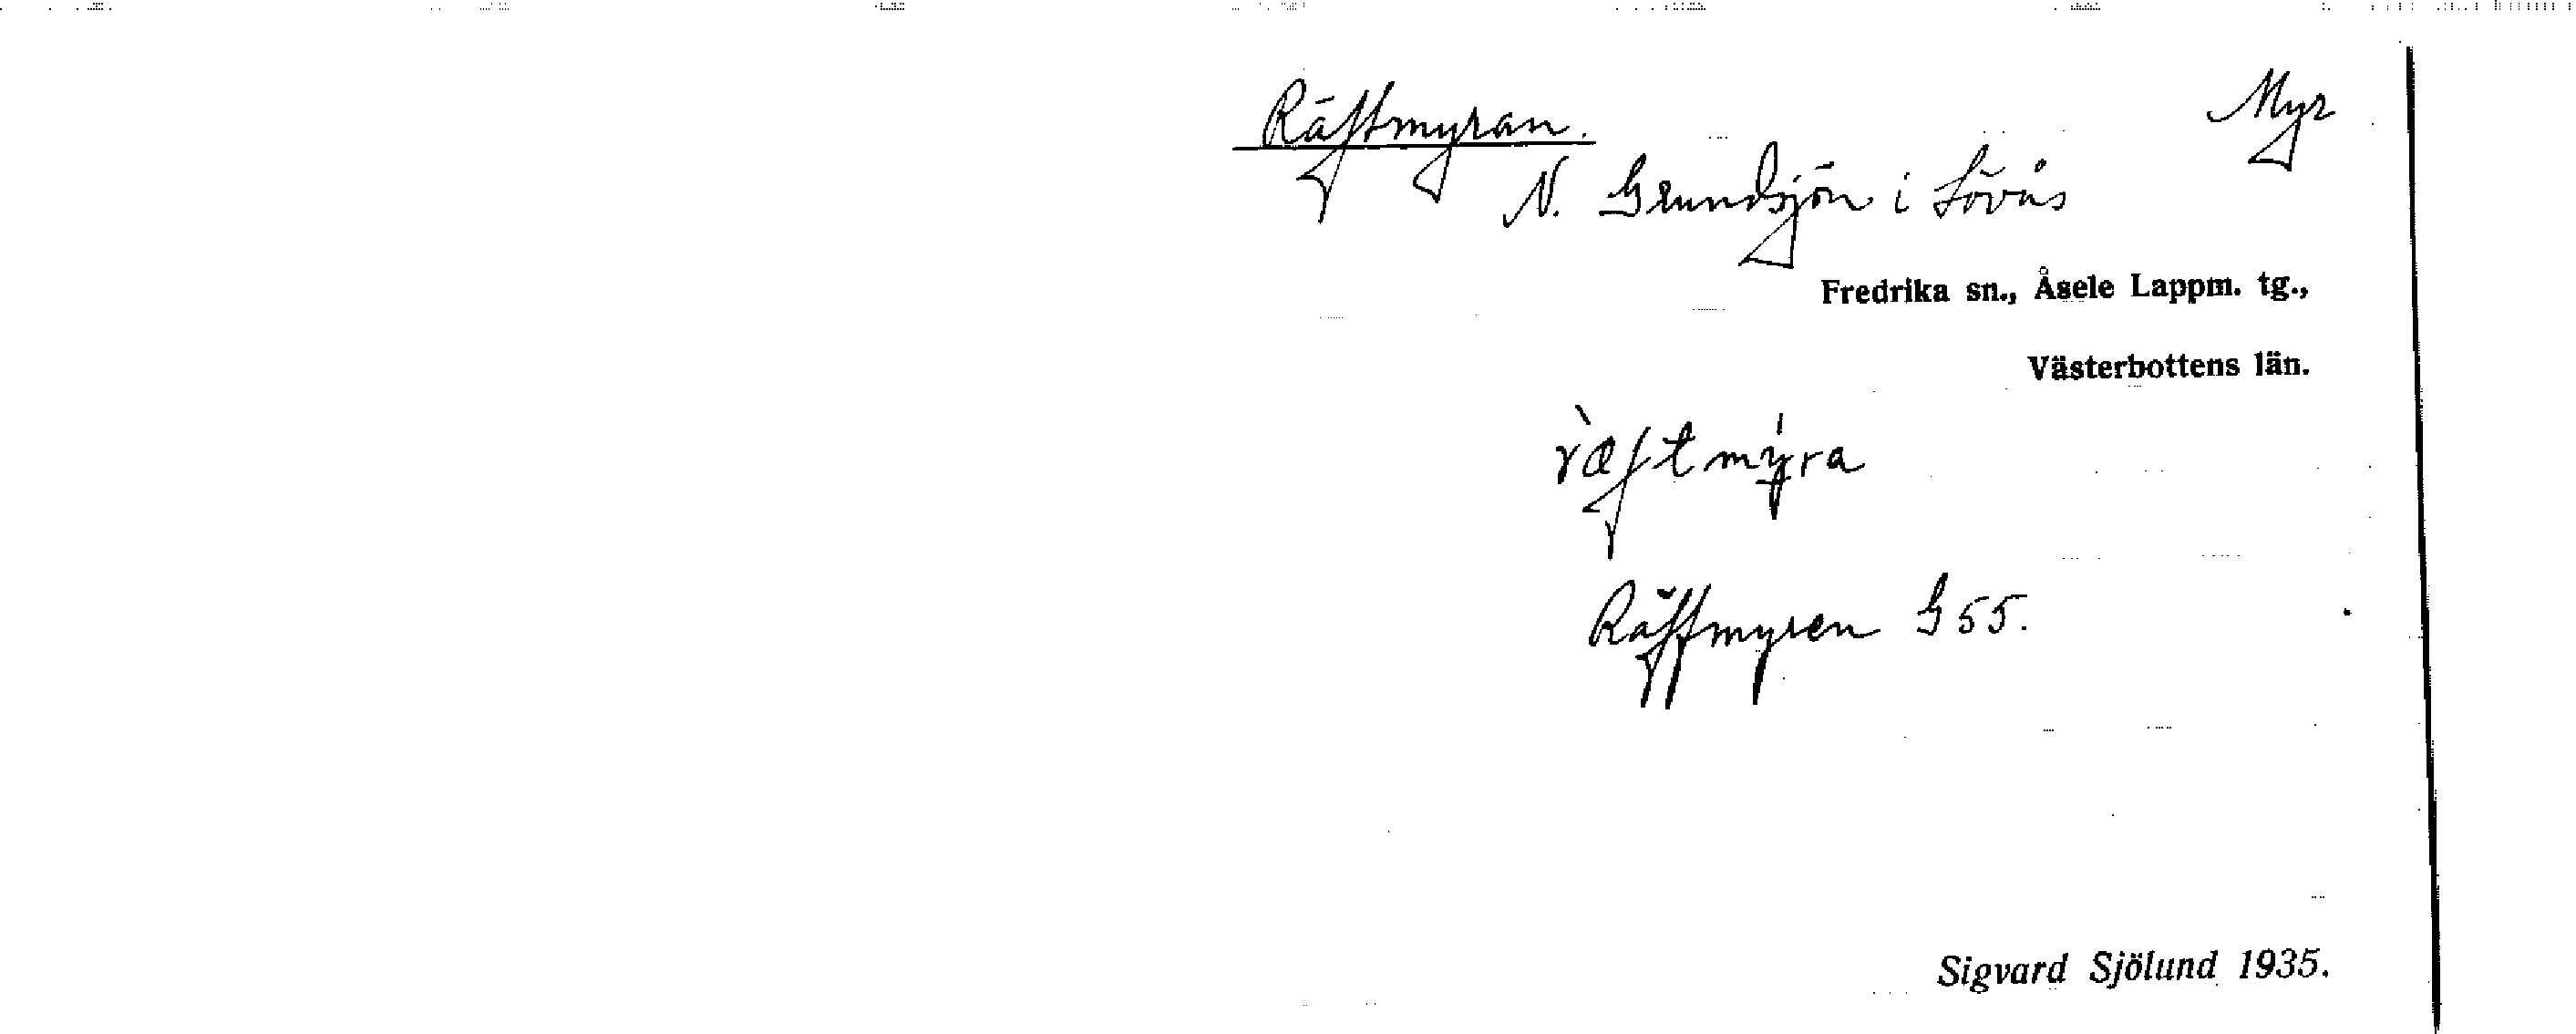 Räftmyran. Myr
N. Grundsjön i Lövås
Fredrika sn., Åsele Lappm. tg.,
Västerbottens län.
ræftmyra
Räffmyren G 55.
Sigvard Sjölund 1935.